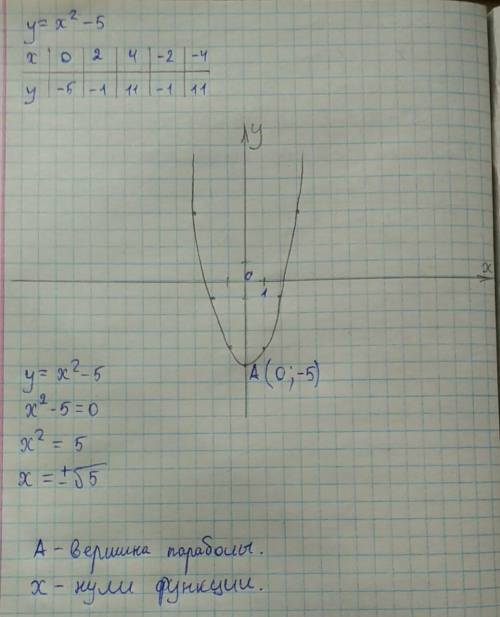 y = x² - 5
x | 0 | 2 | 4 | -2 | -4
y | -5 | -1 | 11 | -1 | 11
y
0
x
1
A(0;-5)
y = x² - 5
x² - 5 = 0
x² = 5
x = ±√5
A - вершина параболы.
x - нули функции.